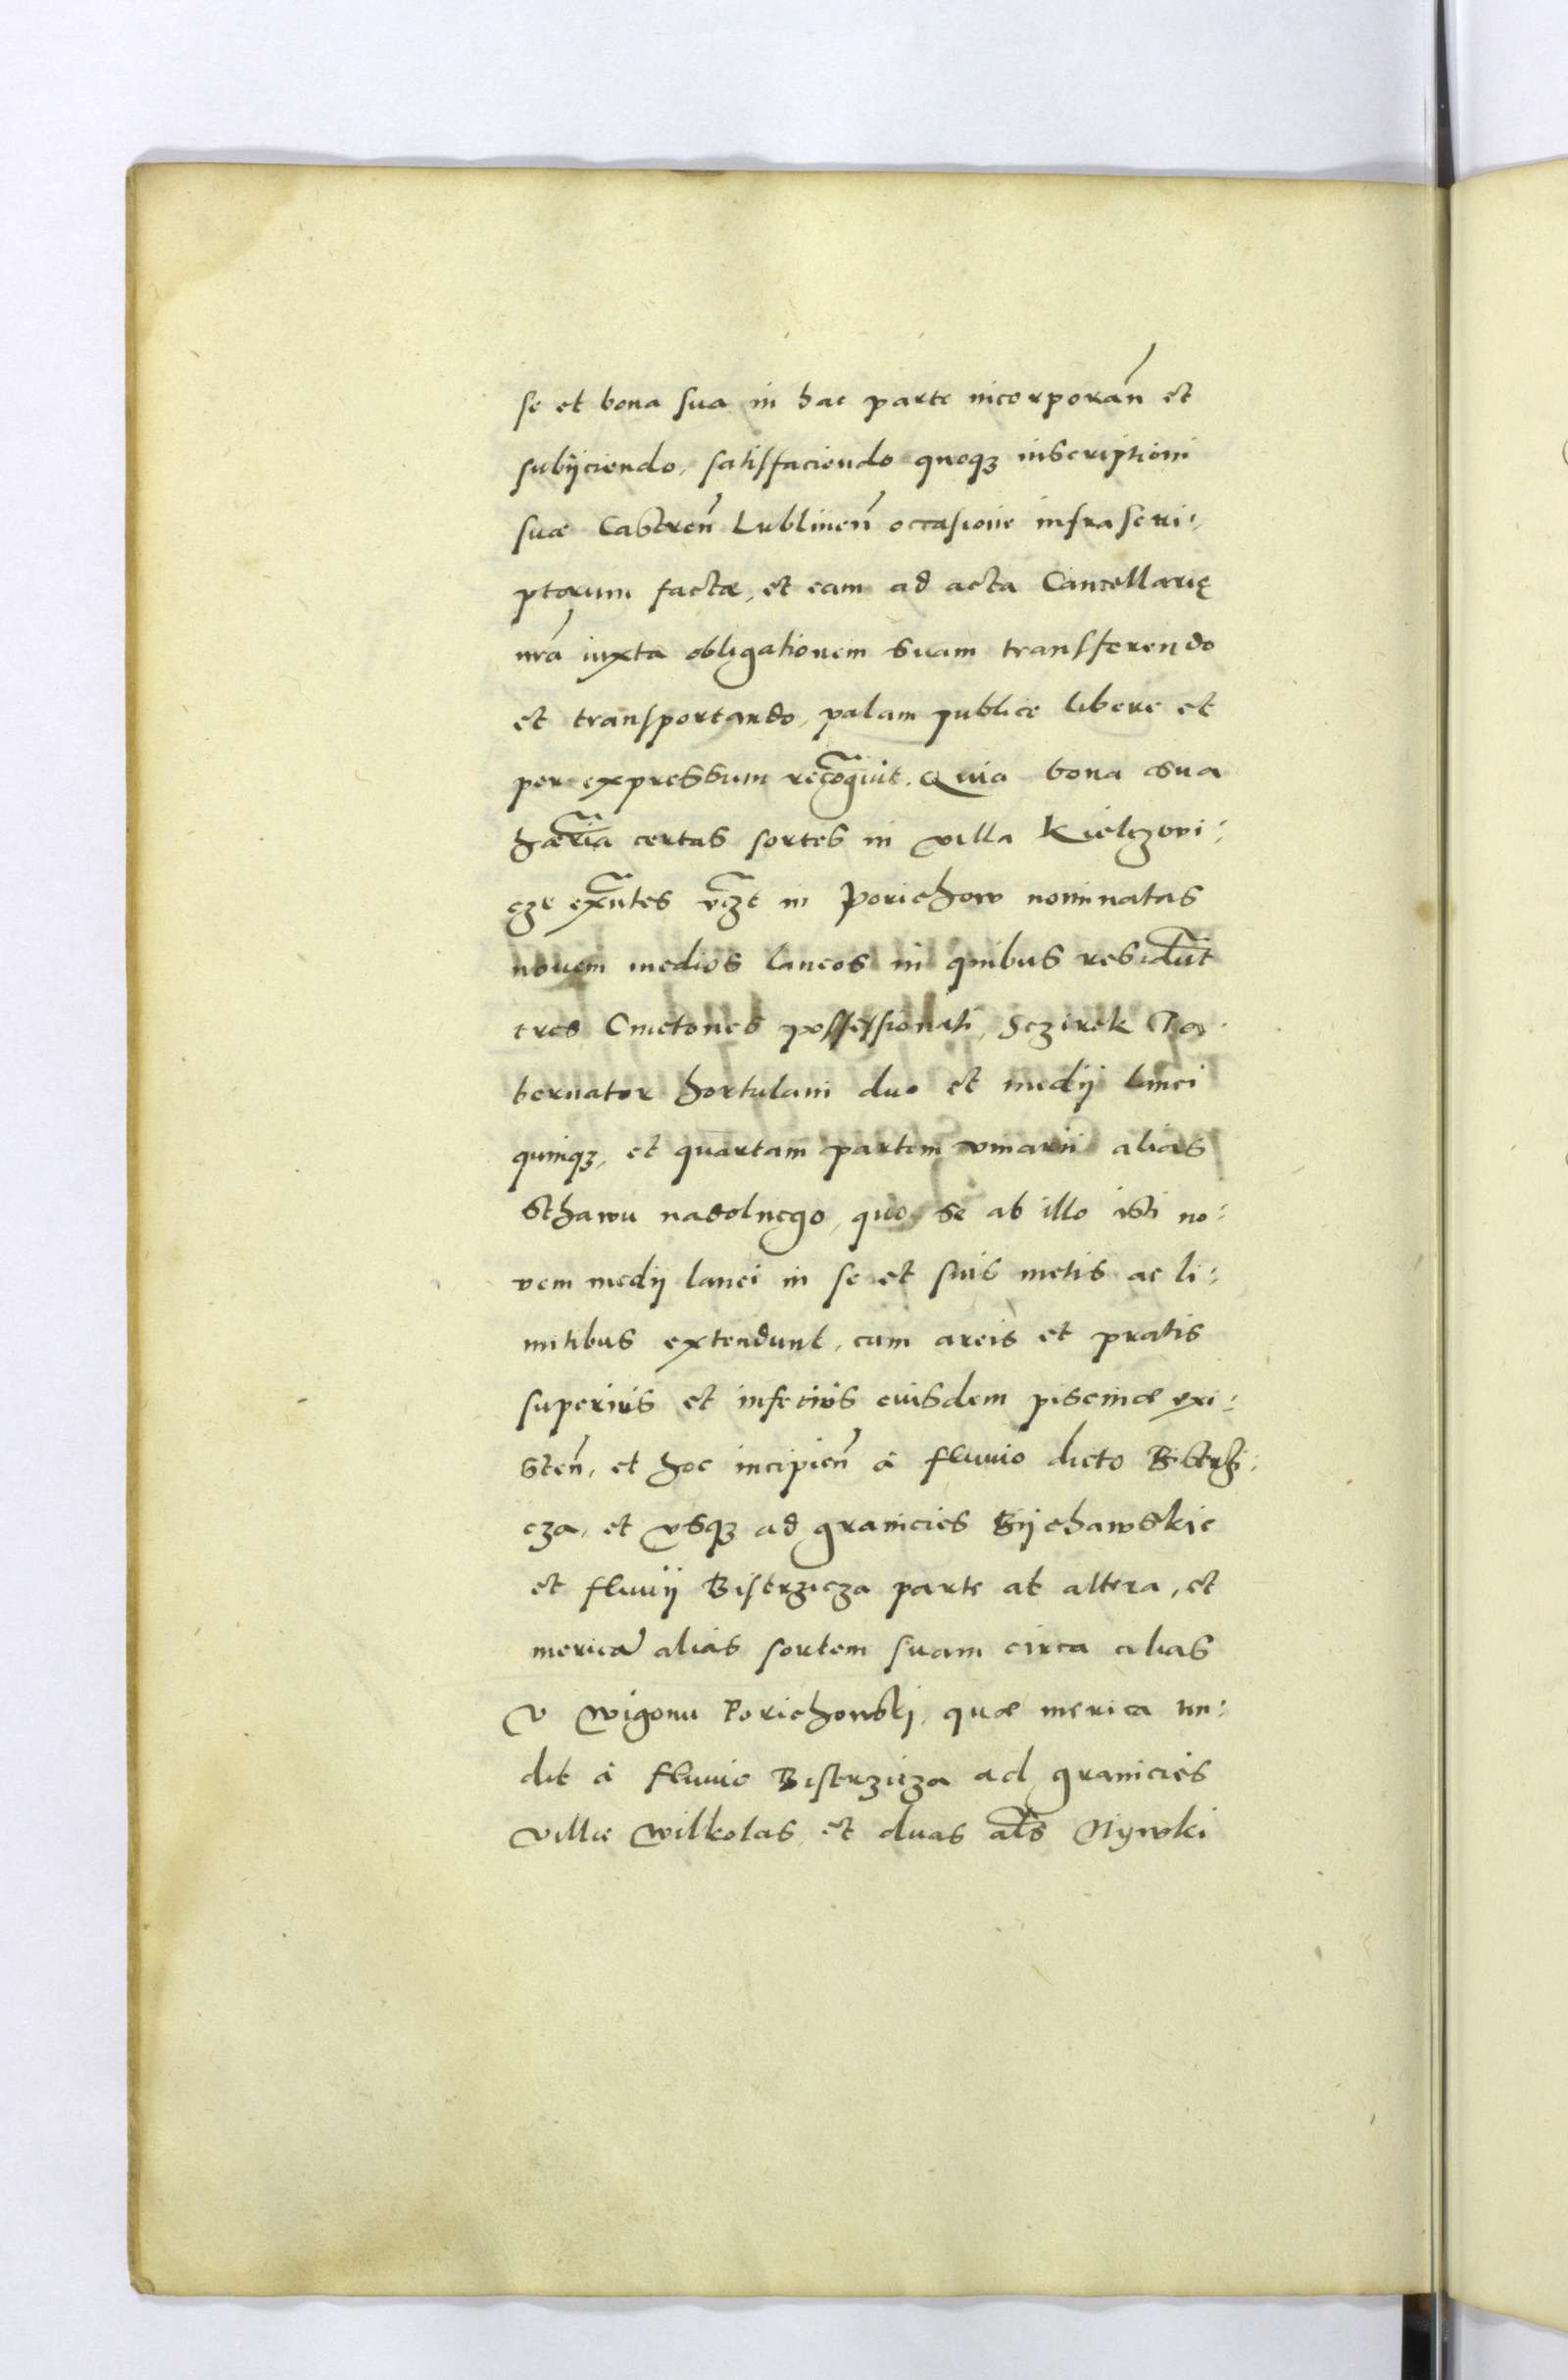 se et bona sua in hac parte incorporan̄ et
subijciendo, satisfaciendo quoqȝ inscriptioni
suæ Castren̄ Lublinen̄ occasione infra scri:
ptorum factæ, et eam ad acta Cancellarię
nr̄a iuxta obligationem suam transferendo
et transportando, palam publice libere et
per expressum recog̃uit. Quia bona sua
hæria certas sortes in villa Kielczewi:
cze exñtes vizt in Porichow nominatas
nouem medios laneos in quibus residũt
tres Cmetones possessionati, Sczirek Ta:
bernator hortulani duo et medij lanei
quinqȝ, et quartam partem vinarii alias
Sthawu nadolnego, quo se ab illo isti no:
vem medij lanei in se et suis metis ac li:
mitibus extendunt, cum areis et pratis
superius et inferius eiusdem piscinæ exi:
sten̄, et hoc incipien̄ à fluuio dicto Bistrzi:
cza, et vsqȝ ad granicies Bijchawskie
et fluuij Bistrzicza parte ab altera, et
merica alias sortem suam circa alias
V Wigonu Porichowski, quæ merica ten:
dit à fluuio Bistrzicza ad granicies
villæ Wilkolas, et duas al̃s Nijwki